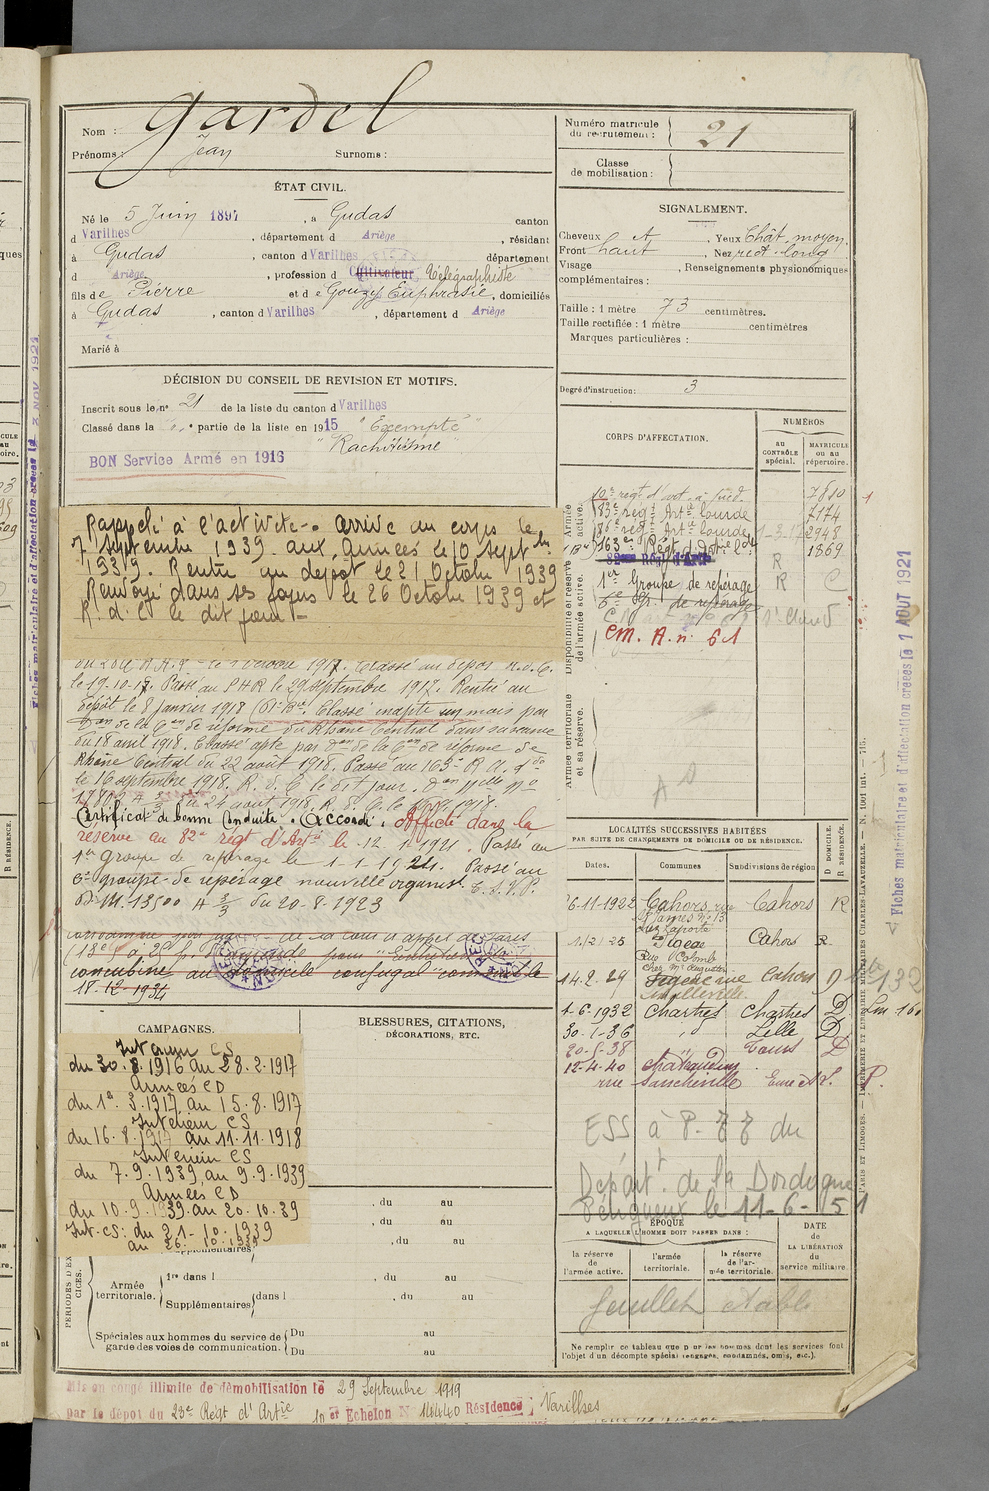 Nom : Gardel
Prénoms : Jean Surnoms :
ÉTAT CIVIL.
Né le 5 Juin 1897, à Gudas canton
d Varilhes, département d Ariège, résidant
à Gudas, canton d Varilhes département
d Ariège, profession d Cultivateur Télégraphiste
fils de Pierre et de Gouzy Euphrasie, domiciliés
à Gudas, canton d Varilhes, département d Ariège
Marié à
DÉCISION DU CONSEIL DE REVISION ET MOTIFS.
Inscrit sous le n° 21 de la liste du canton d Varilhes
Classé dans la partie de la liste en 1915 "Exempté"
"Rachitisme"
BON Service Armé en 1916
Rappelé à l'activité. Arrivé au corps le
7 Septembre 1939 aux Armées le 10 Septbre
1939. Rentré au dépôt le 21 Octobre 1939
Renvoyé dans ses foyers le 26 Octobre 1939 et
R. d. C. le dit jour.
1917. Classé au dépôt R. d. C.
le 19-10-17. Passé au PHR le 29 septembre 1917. Rentré au
dépôt le 8 janvier 1918 Classé inapte un mois par
don de la Con de réforme du Rhône Central dans sa séance
du 18 avril 1918. Classé apte par don de la Con de réforme de
Rhône Central du 22 août 1918. Passé au 163e R. A.
le 16 septembre 1918. R. d. C. le dit jour.
du 24 août 1918. R. d. C. 1918.
Certificat de bonne Conduite "Accordé". Affecté dans la
réserve au 82e régt d'Artie le 12-1-1921. Passé au
1er Groupe de repérage le 1-1-1924. Passé au
6e groupe de repérage nouvelle organisn. E.S.V.P.
D.M. 13500 A 3/3 du 20-8-1923
la cour d'appel de Paris
concubine au domicile conjugal
17-12-1934
CAMPAGNES.
Intérieur CS
du 30.8.1916 au 28.2.1917
Armées CD
du 1er.3.1917 au 15.8.1917
Intérieur CS
du 16.8.1917 au 11.11.1918
Intérieur CS
du 7.9.1939 au 9.9.1939
Armées CD
du 10.9.1939 au 20.10.39
Int. CS: du 21-10-1939
au 26-10-1939
BLESSURES, CITATIONS,
DÉCORATIONS, ETC.
, du au
, du au
, du au
Supplémentaires
Armée territoriale. 1re dans l , du au
Supplémentaires dans l , du au
Spéciales aux hommes du service de garde des voies de communication. Du au
Du au
Mis en congé illimité de démobilisation le 29 Septembre 1919
par le dépôt du 23e Régt d'Artie 10 er Echelon N° 140440 Résidence Varilhes
Numéro matricule
du recrutement : 21
Classe
de mobilisation :
SIGNALEMENT.
Cheveux , Yeux Chât. moyen.
Front haut , Nez rect. long
Visage , Renseignements physionomiques
complémentaires :
Taille : 1 mètre 73 centimètres.
Taille rectifiée : 1 mètre centimètres
Marques particulières :
Degré d'instruction : 3
CORPS D'AFFECTATION.
NUMÉROS
au CONTRÔLE spécial.
MATRICULE ou au répertoire.
Disponibilité et réserve de l'armée active.
Armée active.
10e régt d'art. à pied 7810
83e régt Artie lourde 7174
86e régt Artie lourde 1-3-17 2948
163e Régt d'Artie 1369
82ème Régt d'Artie R
1er Groupe de repérage R C
6e Gr. de repérage
em. A. n° 61
Armée territoriale et sa réserve.
LOCALITÉS SUCCESSIVES HABITÉES
PAR SUITE DE CHANGEMENTS DE DOMICILE OU DE RÉSIDENCE.
Dates. Communes Subdivisions de région D DOMICILE. R RÉSIDENCE.
26-11-1922 Cahors, rue Cahors R
St James n° 13
1/2/25 Figeac Cahors R
Rue Colomb
chez Mr Augustin
14.2.29 Figeac rue Cahors D
1-6-1932 Chartres Chartres D
30-1-36 " Lille D
20-5-38 " Tours D
12-4-40 Châteaudun
rue Sancheville
ESS à P- du
Départt de la Dordogne
Périgueux le 11-6-51
ÉPOQUE
A LAQUELLE L'HOMME DOIT PASSER DANS :
la réserve de l'armée active.
l'armée territoriale.
la réserve de l'armée territoriale.
DATE DE LA LIBÉRATION du service militaire.
feuillet établi
Ne remplir ce tableau que pour les hommes dont les services font
l'objet d'un décompte spécial (engagés, condamnés, omis, etc.).
Fiches matriculaire et d'affectation créées le 1 AOUT 1921
PARIS ET LIMOGES. — IMPRIMERIE ET LIBRAIRIE MILITAIRES CHARLES-LAVAUZELLE. — N. 1001 int. — 715.